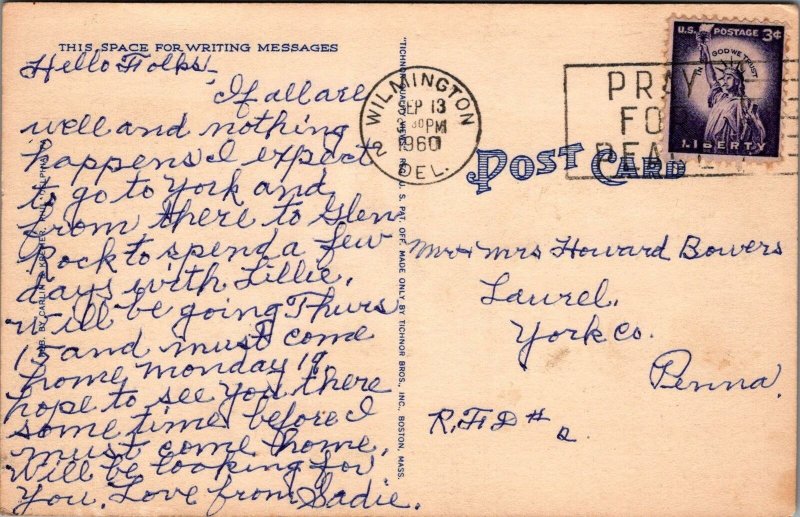 THIS SPACE FOR WRITING MESSAGES
Hello Folks,
If all are
well and nothing
happens I expect
to go to York and
from there to Glen
Rock to spend a few
days with Lillie.
Will be going Thurs
15 and must come
home monday 19.
hope to see you there
some time before I
must come home.
Will be looking for
you. Love from Sadie.
"TICHNOR QUALITY VIEWS," REG. U. S. PAT. OFF. MADE ONLY BY TICHNOR BROS., INC., BOSTON, MASS.
WILMINGTON
SEP 13
30 PM
1960
2 DEL.
PRAY
FO
PEA
U.S. POSTAGE 3¢
IN GOD WE TRUST
LIBERTY
POST CARD
Mr + Mrs Howard Bowers
Laurel,
York co.
Penna.
R.F.D # 2.